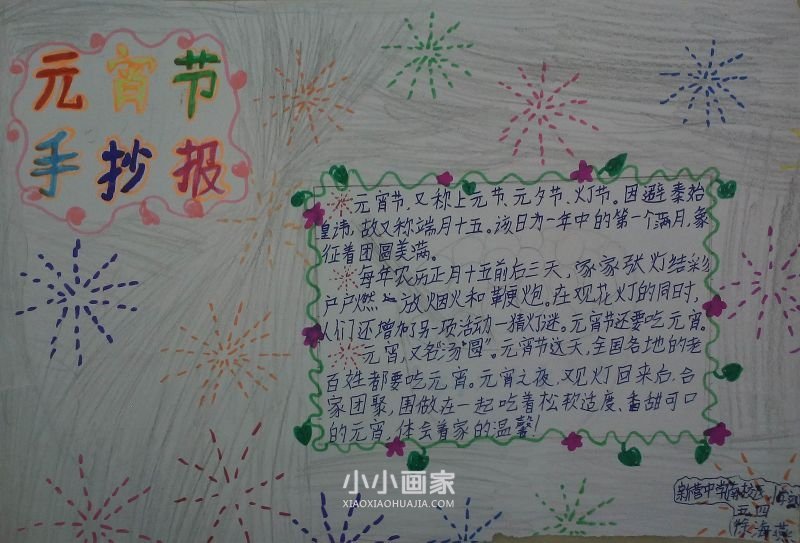 元宵节
手抄报
元宵节,又称上元节、元夕节、灯节。因避秦始
皇讳,故又称端月十五。该日为一年中的第一个满月,象
征着团圆美满。
每年农历正月十五前后三天,家家张灯结彩
户户燃 放烟火和鞭炮。在观花灯的同时,
人们还增 另一项活动一猜灯谜。元宵节还要吃元宵。
元宵,又名"汤圆"。元宵节这天,全国各地的老
百姓都要吃元宵。元宵之夜,观灯回来后,合
家团聚,围做在一起吃着松软适度、香甜可口
的元宵,体会着家的温馨!
小小画家
XIAOXIAOHUAJIA.COM
新营中学南校区
五四
徐海燕